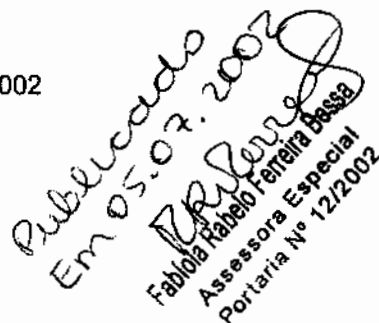 002
Publicado
Em 05.07.2002
Fabíola Rabelo Ferreira Bessa
Assessora Especial
Portaria Nº 12/2002